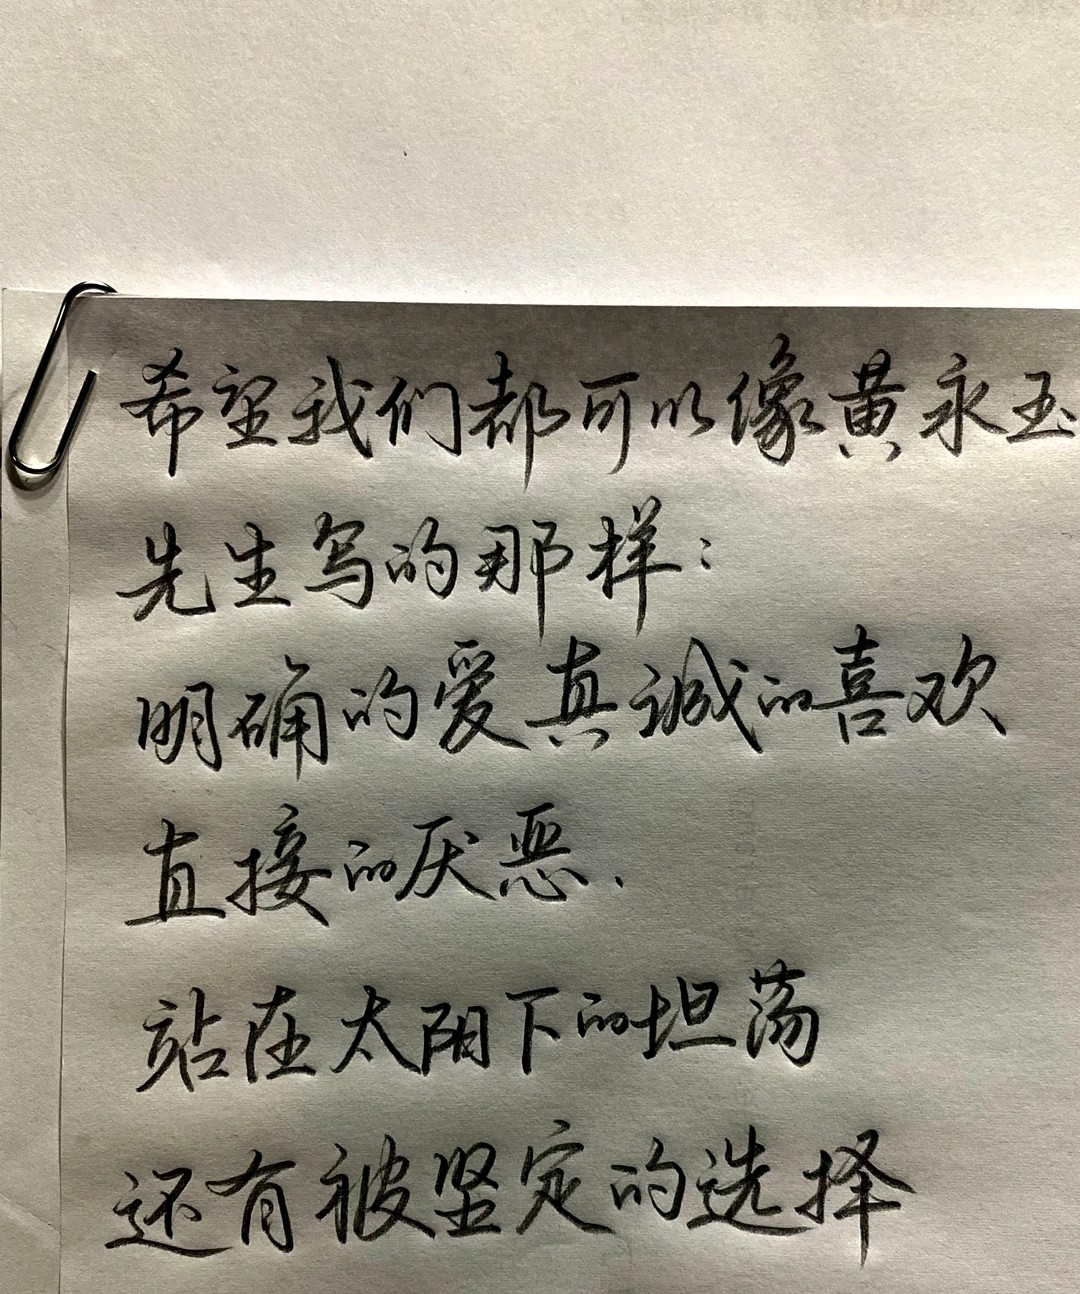 希望我们都可以像黄永玉
先生写的那样:
明确的爱真诚的喜欢
直接的厌恶.
站在太阳下的坦荡
还有被坚定的选择